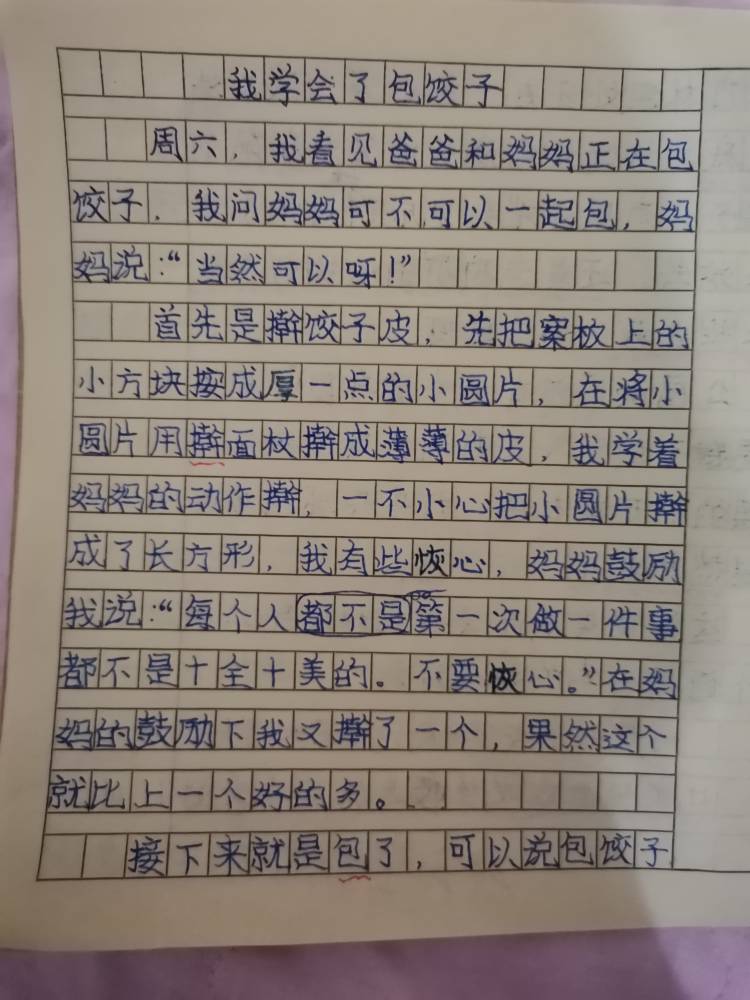 我学会了包饺子
周六，我看见爸爸和妈妈正在包
饺子，我问妈妈可不可以一起包，妈
妈说：“当然可以呀！”
首先是擀饺子皮，先把案板上的
小方块按成厚一点的小圆片，在将小
圆片用擀面杖擀成薄薄的皮，我学着
妈妈的动作擀，一不小心把小圆片擀
成了长方形，我有些恢心，妈妈鼓励
我说：“每个人都不是第一次做一件事
都不是十全十美的。不要恢心。”在妈
妈的鼓励下我又擀了一个，果然这个
就比上一个好的多。
接下来就是包了，可以说包饺子